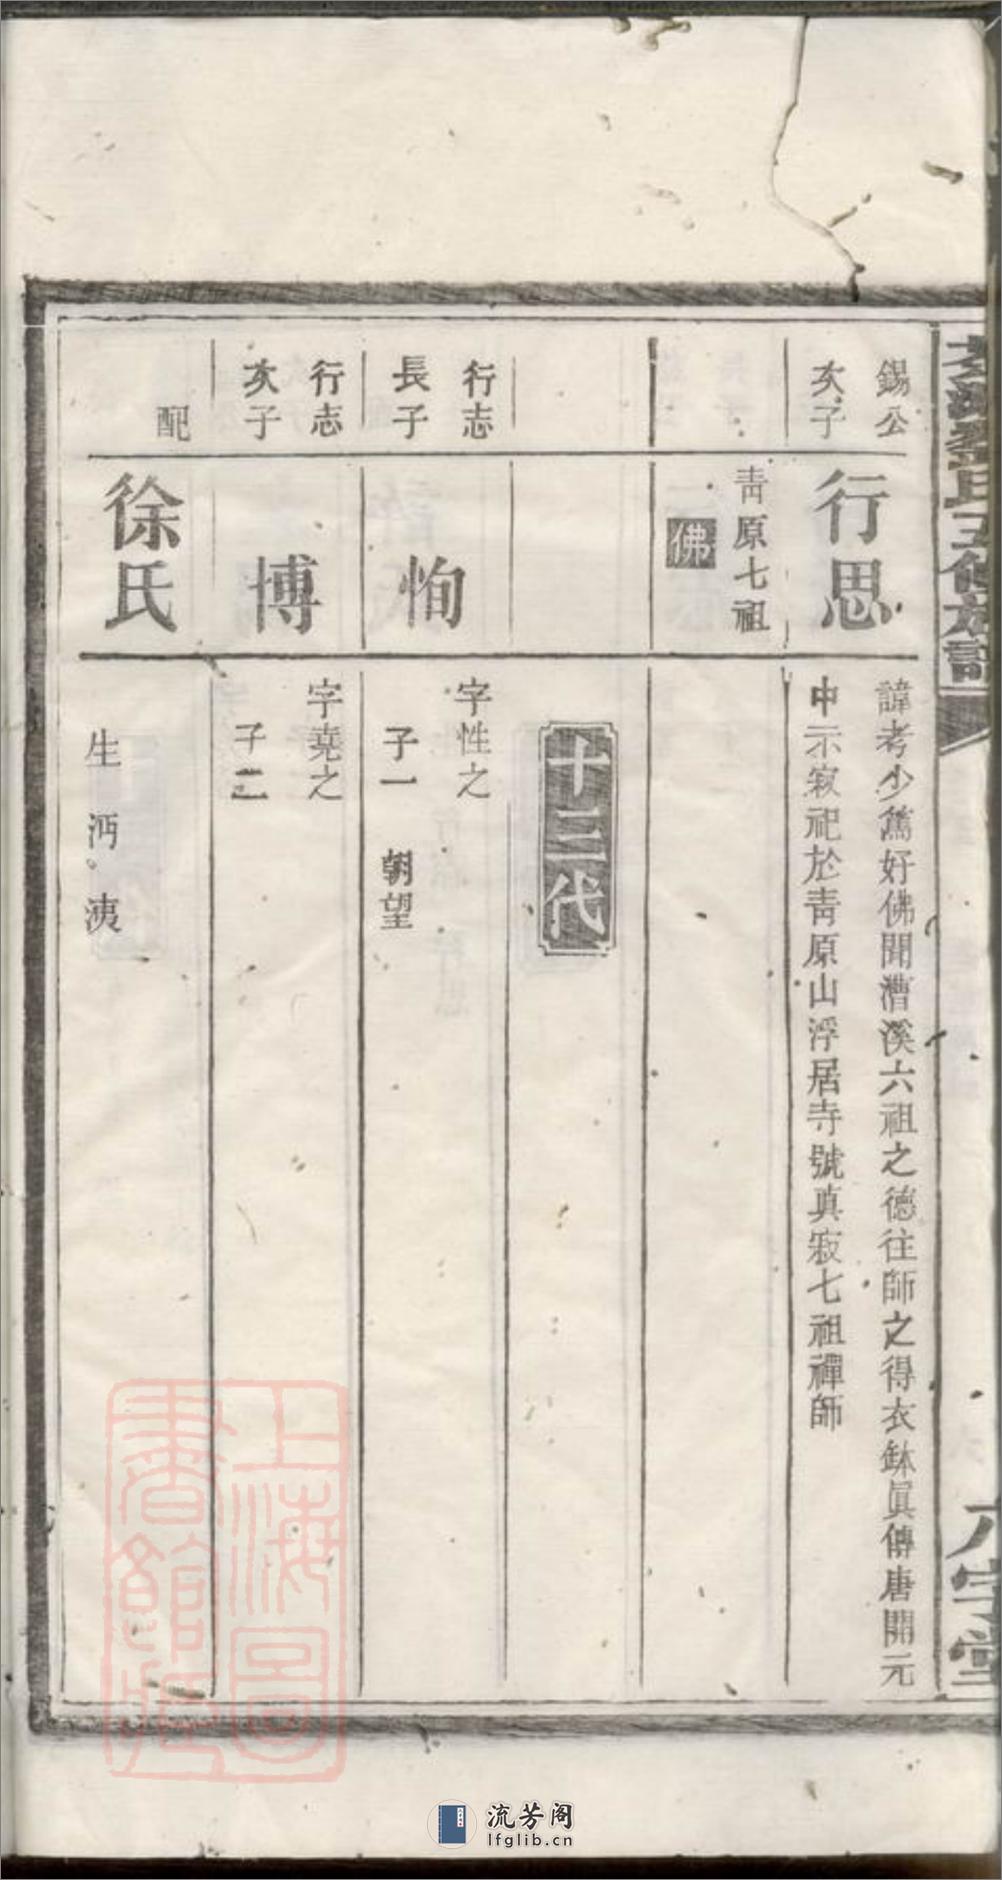 氏五修族譜
八字堂
錫公
次子
行思
諱考少篤好佛聞漕溪六祖之德往師之得衣鉢眞傳唐開元
中示寂祀於青原山浮居寺號真寂七祖禪師
青原七祖
佛
十三代
行志
長子
恂
字性之
子一 朝望
行志
次子
博
字堯之
子二
配
徐氏
生 沔 洟
上海圖書館藏
流芳阁
lfglib.cn